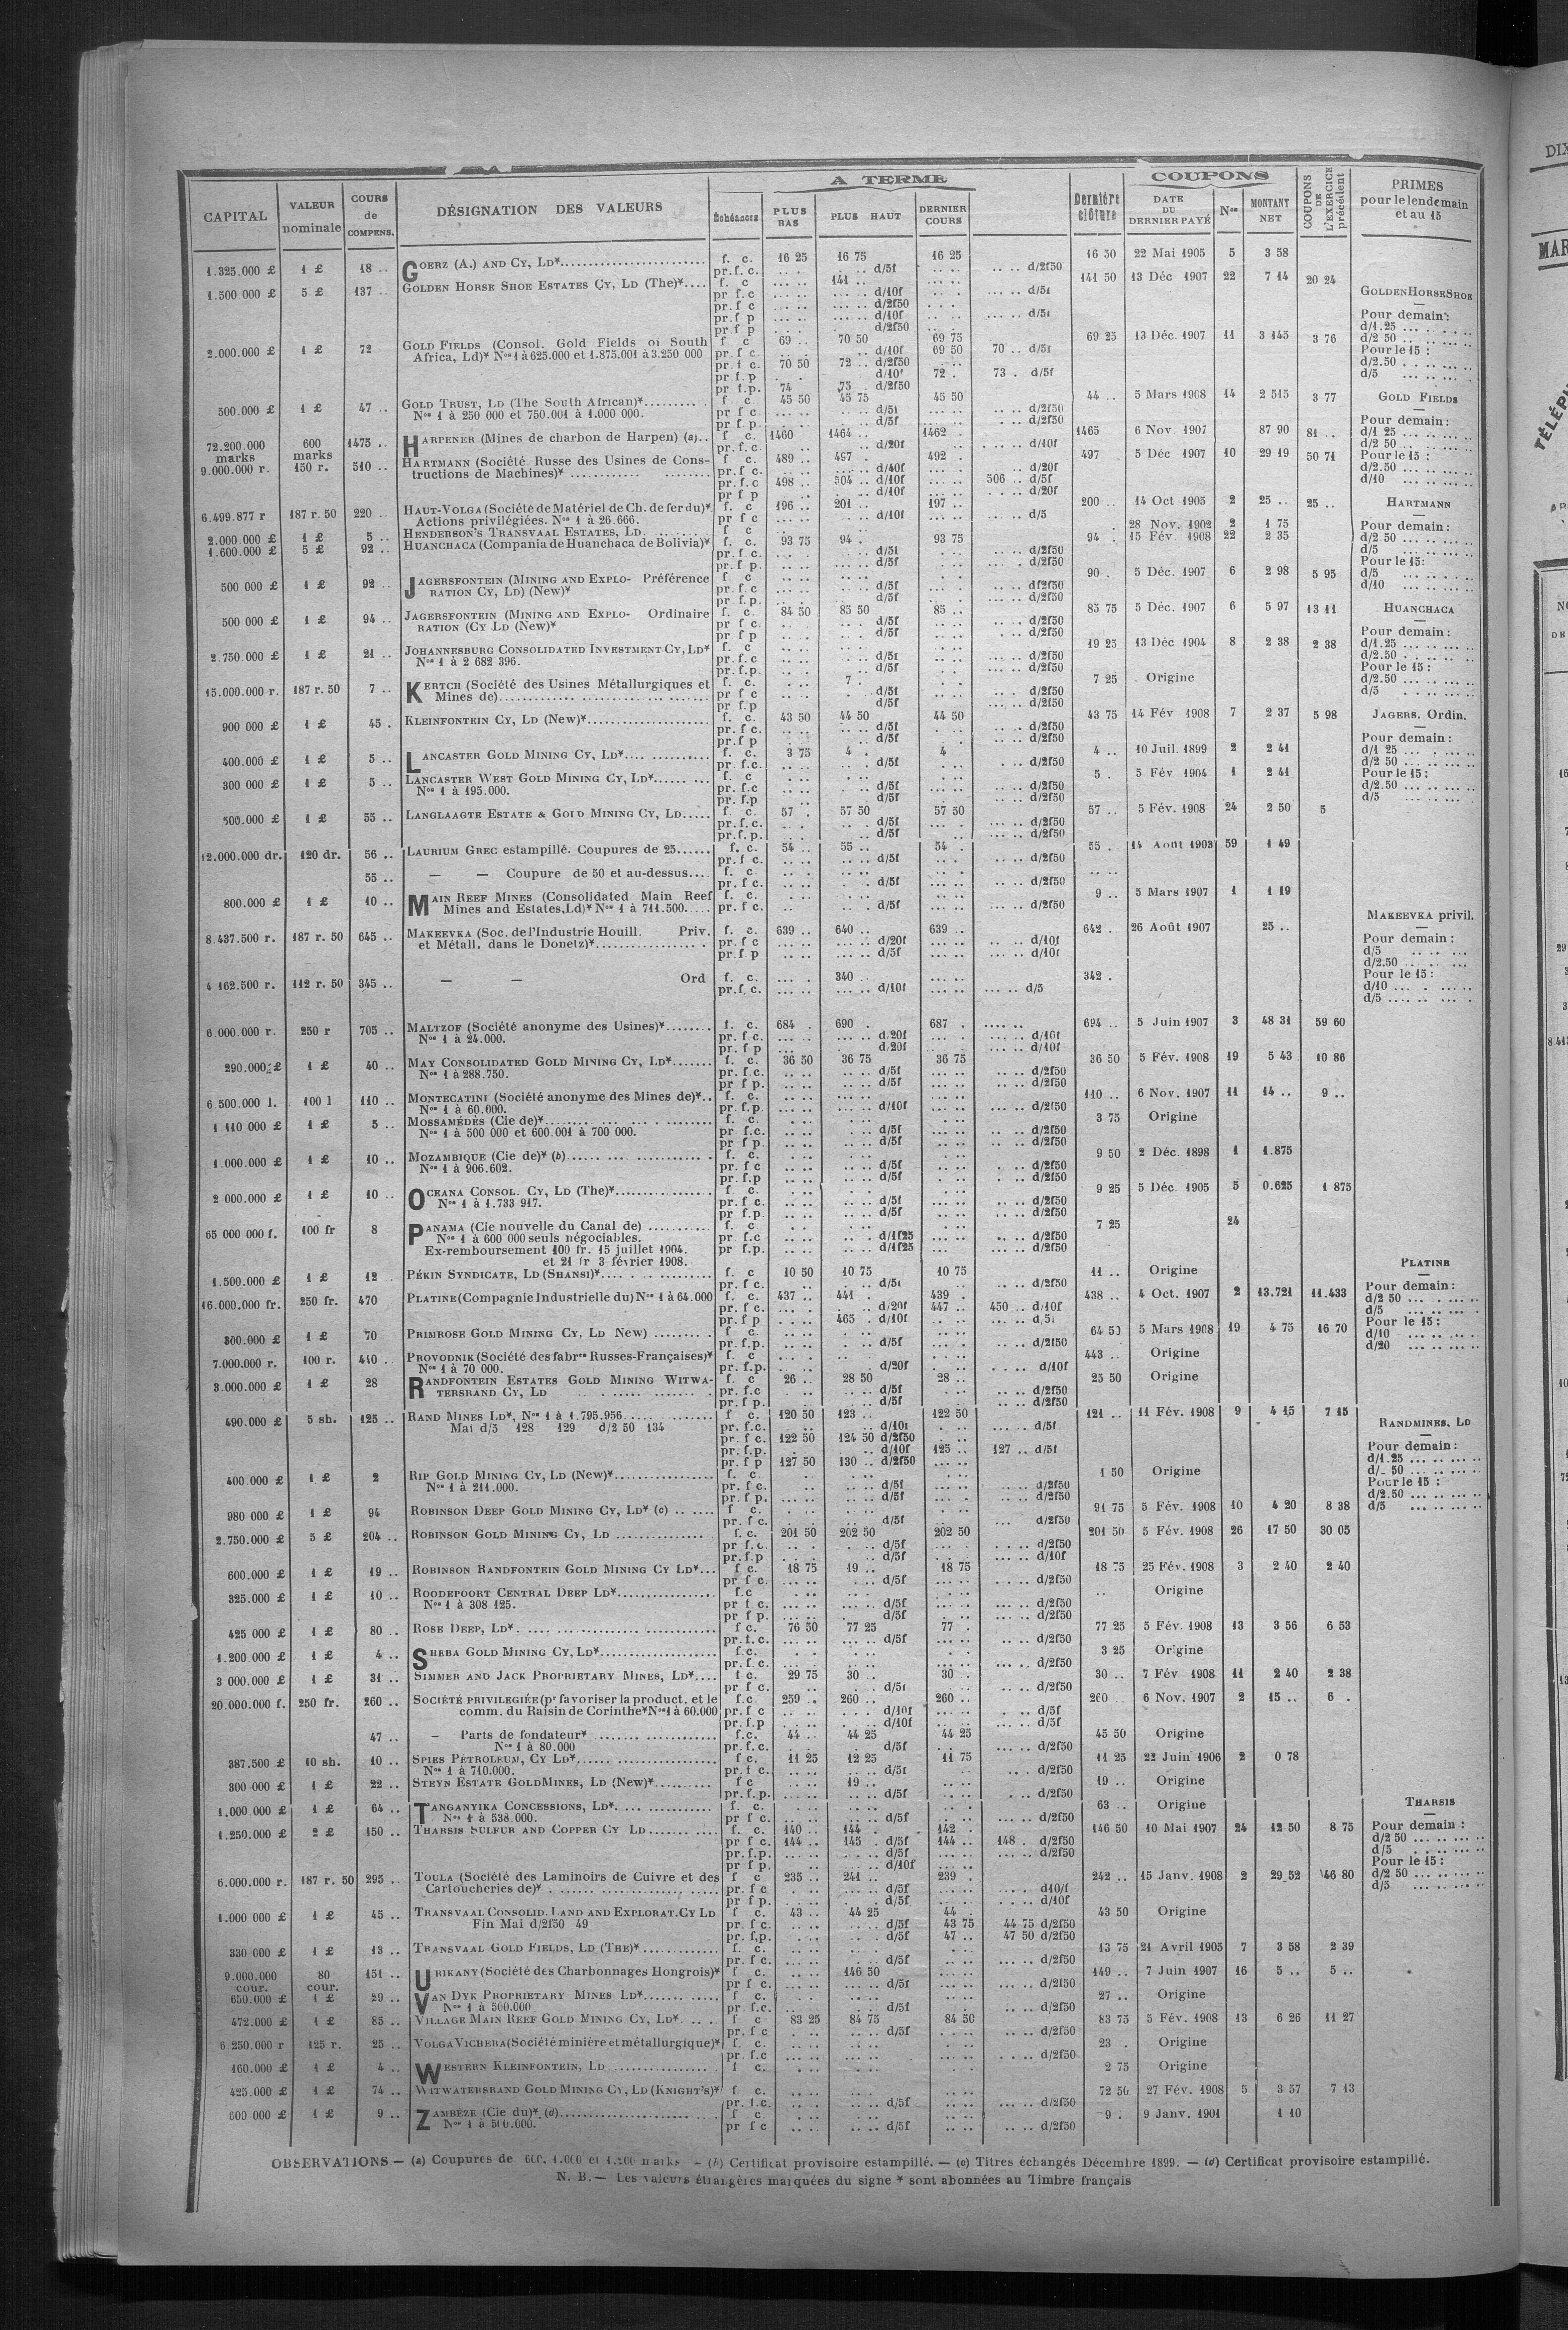 A TERME
COUPONS
CAPITAL | VALEUR nominale | COURS de COMPENS. | DÉSIGNATION DES VALEURS | Échéances | PLUS BAS | PLUS HAUT | DERNIER COURS | Dernière clôture | DATE DU DERNIER PAYÉ | Nos | MONTANT NET | COUPONS DE L'EXERCICE précédent | PRIMES pour le lendemain et au 15
1.325.000 £ | 1 £ | 18 .. | GOERZ (A.) AND CY, LD* | f. c. | 16 25 | 16 75 | 16 25 | 16 50 | 22 Mai 1905 | 5 | 3 58
pr.f.c. | d/5f | d/2f50
1.500 000 £ | 5 £ | 137 | GOLDEN HORSE SHOE ESTATES CY, LD (The)* | f. c | 141 .. | 141 50 | 13 Déc 1907 | 22 | 7 14 | 20 24
pr f.c | d/10f | d/5f
pr. f c | d/2f50
pr f p | d/10f | d/5f
pr f p | d/2f50
2.000.000 £ | 1 £ | 72 | GOLD FIELDS (Consol. Gold Fields of South | f c | 69 .. | 70 50 | 69 75 | 69 25 | 13 Déc. 1907 | 11 | 3 145 | 3 76
Africa, Ld)* Nos 1 à 625.000 et 1.875.001 à 3.250 000 | pr. f c. | d/10f | 69 50 | 70 .. d/5f
pr. f c. | 70 50 | 72 .. d/2f50
pr. f. p | d/10f | 72 . | 73 . d/5f
pr f.p. | 74 | 75 . d/2f50
500.000 £ | 1 £ | 47 .. | GOLD TRUST, LD (The South African)* | f c | 45 50 | 45 75 | 45 50 | 44 .. | 5 Mars 1908 | 14 | 2 515 | 3 77
Nos 1 à 250 000 et 750.001 à 1.000 000. | pr f c | d/5f | d/2f50
pr f p. | d/5f | d/2f50
72.200.000 marks | 600 marks | 1475 .. | HARPENER (Mines de charbon de Harpen) (a) | f c. | 1460 | 1464 .. | 1462 . | 1465 | 6 Nov. 1907 | 87 90 | 81 ..
pr. f.c. | d/20f | d/10f
9.000.000 r. | 150 r. | 510 .. | HARTMANN (Société Russe des Usines de Cons- | f c. | 489 .. | 497 . | 492 . | 497 | 5 Déc 1907 | 10 | 29 19 | 50 71
tructions de Machines)* | pr. f c. | d/40f | d/20f
pr. f.c | 498 .. | 504 .. d/10f | 506 .. d/5f
pr f p | d/10f | d/20f
6.499.877 r | 187 r. 50 | 220 .. | HAUT-VOLGA (Société de Matériel de Ch. de fer du)* | f. c | 196 .. | 201 .. | 197 .. | 200 .. | 14 Oct 1905 | 2 | 25 .. | 25 ..
Actions privilégiées. Nos 1 à 26.666. | pr f c | d/10f | d/5
2.000.000 £ | 1 £ | 5 .. | HENDERSON'S TRANSVAAL ESTATES, LD. | f c | 28 Nov. 1902 | 2 | 1 75
1.600.000 £ | 5 £ | 92 .. | HUANCHACA (Compania de Huanchaca de Bolivia)* | f. c. | 93 75 | 94 . | 93 75 | 94 . | 15 Fév 1908 | 22 | 2 35
pr. f c. | d/5f | d/2f50
pr. f p. | d/5f | d/2f50
500 000 £ | 1 £ | 92 .. | JAGERSFONTEIN (MINING AND EXPLO- Préférence | f c | 90 . | 5 Déc. 1907 | 6 | 2 98 | 5 95
RATION CY, LD) (New)* | pr. f.c | d/5f | d/2f50
pr f.p. | d/5f | d/2f50
500 000 £ | 1 £ | 94 .. | JAGERSFONTEIN (MINING AND EXPLO- Ordinaire | f. c | 84 50 | 85 50 | 85 .. | 85 75 | 5 Déc. 1907 | 6 | 5 97 | 13 11
RATION (CY LD (New)* | pr f c. | d/5f | d/2f50
pr f p | d/5f | d/2f50
2.750 000 £ | 1 £ | 21 .. | JOHANNESBURG CONSOLIDATED INVESTMENT CY, LD* | f. c | 19 25 | 13 Déc 1904 | 8 | 2 38 | 2 38
Nos 1 à 2 682 396. | pr. f.c | d/5f | d/2f50
pr. f.p. | d/5f | d/2f50
15.000.000 r. | 187 r. 50 | 7 .. | KERTCH (Société des Usines Métallurgiques et | f. c. | 7 . | 7 25 | Origine
Mines de) | pr f c | d/5f | d/2f50
pr. f.p | d/5f | d/2f50
900 000 £ | 1 £ | 45 . | KLEINFONTEIN CY, LD (New)* | f. c. | 43 50 | 44 50 | 44 50 | 43 75 | 14 Fév 1908 | 7 | 2 37 | 5 98
pr. f c. | d/5f | d/2f50
pr.f p | d/5f | d/2f50
400.000 £ | 1 £ | 5 .. | LANCASTER GOLD MINING CY, LD* | f. c. | 3 75 | 4 . | 4 | 4 .. | 10 Juil. 1899 | 2 | 2 41
pr f.c. | d/5f | d/2f50
300 000 £ | 1 £ | 5 .. | LANCASTER WEST GOLD MINING CY, LD* | f. c | 5 . | 5 Fév 1904 | 1 | 2 41
Nos 1 à 195.000. | pr. f.c | d/5f | d/2f50
pr. f.p | d/5f | d/2f50
500.000 £ | 1 £ | 55 .. | LANGLAAGTE ESTATE & GOLD MINING CY, LD | f. c. | 57 . | 57 50 | 57 50 | 57 .. | 5 Fév. 1908 | 24 | 2 50 | 5
pr. f.c. | d/5f | d/2f50
pr.f.p. | d/5f | d/2f50
12.000.000 dr. | 120 dr. | 56 .. | LAURIUM GREC estampillé. Coupures de 25 | f. c. | 54 .. | 55 .. | 54 . | 55 . | 14 Août 1903 | 59 | 1 49
pr. f c. | d/5f | d/2f50
55 .. | — — Coupure de 50 et au-dessus | f. c.
pr f c. | d/5f | d/2f50
800.000 £ | 1 £ | 10 .. | MAIN REEF MINES (Consolidated Main Reef | f. c. | 9 .. | 5 Mars 1907 | 1 | 1 19
Mines and Estates, Ld)* Nos 1 à 711.500. | pr. f c. | d/5f | d/2f50
8.437.500 r. | 187 r. 50 | 645 .. | MAKEEVKA (Soc. de l'Industrie Houill. Priv. | f. c. | 639 .. | 640 .. | 639 .. | 642 . | 26 Août 1907 | 25 ..
et Métall. dans le Donetz)* | pr. f c | d/20f | d/10f
pr.f p | d/5f | d/10f
4 162.500 r. | 112 r. 50 | 345 .. | — — Ord | f. c. | 340 | 342 .
pr.f. c. | d/10f | d/5
6.000.000 r. | 250 r | 705 .. | MALTZOF (Société anonyme des Usines)* | f. c. | 684 . | 690 . | 687 . | 694 .. | 5 Juin 1907 | 3 | 48 31 | 59 60
Nos 1 à 24.000. | pr. f c. | d/20f | d/10f
pr. f p | d/20f | d/10f
290.000 £ | 1 £ | 40 .. | MAY CONSOLIDATED GOLD MINING CY, LD* | f. c. | 36 50 | 36 75 | 36 75 | 36 50 | 5 Fév. 1908 | 19 | 5 43 | 10 86
Nos 1 à 288.750. | pr. f.c. | d/5f | d/2f50
pr f p. | d/5f | d/2f50
6.500.000 l. | 100 l | 110 .. | MONTECATINI (Société anonyme des Mines de)* | f. c. | 110 .. | 6 Nov. 1907 | 11 | 14 .. | 9 ..
Nos 1 à 60.000. | pr. f.p. | d/10f | d/2f50
1 110 000 £ | 1 £ | 5 .. | MOSSAMÉDÈS (Cie de)* | f. c. | 3 75 | Origine
Nos 1 à 500 000 et 600.001 à 700 000. | pr f.c. | d/5f | d/2f50
pr f p. | d/5f | d/2f50
1.000.000 £ | 1 £ | 10 .. | MOZAMBIQUE (Cie de)* (b) | f. c. | 9 50 | 2 Déc. 1898 | 1 | 1.875
Nos 1 à 906.602. | pr. f c | d/5f | d/2f50
pr. f.p | d/5f | d/2f50
2 000.000 £ | 1 £ | 10 .. | OCEANA CONSOL. CY, LD (The)* | f c. | 9 25 | 5 Déc. 1905 | 5 | 0.625 | 1 875
Nos 1 à 1.733 917. | pr. f c. | d/5f | d/2f50
pr f.p. | d/5f | d/2f50
65 000 000 f. | 100 fr | 8 | PANAMA (Cie nouvelle du Canal de) | f. c | 7 25 | 24
Nos 1 à 600 000 seuls négociables. | pr. f.c | d/1f25 | d/2f50
Ex-remboursement 100 fr. 15 juillet 1904. | pr f.p. | d/1f25 | d/2f50
et 21 fr 3 février 1908.
1.500.000 £ | 1 £ | 12 | PÉKIN SYNDICATE, LD (SHANSI)* | f. c | 10 50 | 10 75 | 10 75 | 11 .. | Origine
pr f c. | d/5f | d/2f50
16.000.000 fr. | 250 fr. | 470 | PLATINE (Compagnie Industrielle du) Nos 1 à 64.000 | f. c. | 437 .. | 441 . | 439 . | 438 .. | 4 Oct. 1907 | 2 | 13.721 | 11.433
pr. f c. | d/20f | 447 .. | 450 .. d/10f
pr. f p | 465 . d/10f | d/5f
300.000 £ | 1 £ | 70 | PRIMROSE GOLD MINING CY, LD New) | f c. | 64 50 | 5 Mars 1908 | 19 | 4 75 | 16 70
pr. f.p. | d/5f | d/2f50
7.000.000 r. | 100 r. | 440 . | PROVODNIK (Société des fabres Russes-Françaises)* | f. c | 443 .. | Origine
Nos 1 à 70 000. | pr. f.p. | d/20f | d/10f
3.000.000 £ | 1 £ | 28 | RANDFONTEIN ESTATES GOLD MINING WITWA- | f. c | 26 .. | 28 50 | 28 .. | 25 50 | Origine
TERSRAND CY, LD | pr. f.c | d/5f | d/2f50
pr. f p. | d/5f | d/2f50
490.000 £ | 5 sh. | 125 .. | RAND MINES LD*, Nos 1 à 1.795.956 | f c. | 120 50 | 123 .. | 122 50 | 121 .. | 11 Fév. 1908 | 9 | 4 15 | 7 15
Mai d/5 128 129 d/2 50 134 | pr. f.c. | d/10f | d/5f
pr. f c. | 122 50 | 124 50 d/2f50
pr. f.p. | d/10f | 125 .. | 127 .. d/5f
pr. f p | 127 50 | 130 .. d/2f50
400.000 £ | 1 £ | 2 | RIP GOLD MINING CY, LD (New)* | f. c. | 1 50 | Origine
Nos 1 à 211.000. | pr. f c. | d/5f | d/2f50
pr. f p. | d/5f | d/2f50
980 000 £ | 1 £ | 94 | ROBINSON DEEP GOLD MINING CY, LD* (c) | f c. | 91 75 | 5 Fév. 1908 | 10 | 4 20 | 8 38
pr. f c. | d/5f | d/2f50
2.750.000 £ | 5 £ | 204 .. | ROBINSON GOLD MINING CY, LD | f. c. | 201 50 | 202 50 | 202 50 | 201 50 | 5 Fév. 1908 | 26 | 17 50 | 30 05
pr f.c. | d/5f | d/2f50
pr. f.p | d/5f | d/10f
600.000 £ | 1 £ | 19 .. | ROBINSON RANDFONTEIN GOLD MINING CY LD* | f c. | 18 75 | 19 .. | 18 75 | 18 75 | 25 Fév. 1908 | 3 | 2 40 | 2 40
pr f c. | d/5f | d/2f50
325.000 £ | 1 £ | 10 .. | ROODEPOORT CENTRAL DEEP LD* | f.c | .. | Origine
Nos 1 à 308 125. | pr f c. | d/5f | d/2f50
pr f p. | d/5f | d/2f50
425 000 £ | 1 £ | 80 .. | ROSE DEEP, LD* | f c. | 76 50 | 77 25 | 77 . | 77 25 | 5 Fév. 1908 | 13 | 3 56 | 6 53
pr. f. c. | d/5f | d/2f50
1.200.000 £ | 1 £ | 4 .. | SHEBA GOLD MINING CY, LD* | f. c. | 3 25 | Origine
pr. f c. | d/2f50
3 000.000 £ | 1 £ | 31 .. | SIMMER AND JACK PROPRIETARY MINES, LD* | f c. | 29 75 | 30 .. | 30 . | 30 .. | 7 Fév 1908 | 11 | 2 40 | 2 38
pr f c. | d/5f | d/2f50
20.000.000 f. | 250 fr. | 260 .. | SOCIÉTÉ PRIVILEGIÉE (pr favoriser la product. et le | f.c. | 259 . | 260 .. | 260 .. | 260 .. | 6 Nov. 1907 | 2 | 15 .. | 6 .
comm. du Raisin de Corinthe* Nos 1 à 60.000 | pr. f c | d/10f | d/5f
pr. f.p | d/10f | d/5f
47 .. | — Parts de fondateur* | f.c. | 44 .. | 44 25 | 44 25 | 45 50 | Origine
Nos 1 à 80.000 | pr. f.c. | d/5f | d/2f50
387.500 £ | 10 sh. | 10 .. | SPIES PETROLEUM, CY LD* | f c. | 11 25 | 12 25 | 11 75 | 11 25 | 22 Juin 1906 | 2 | 0 78
Nos 1 à 710.000. | pr. f c. | d/5f | d/2f50
300 000 £ | 1 £ | 22 .. | STEYN ESTATE GOLD MINES, LD (New)* | f c | 19 .. | 19 .. | Origine
pr. f.p. | d/5f | d/2f50
1.000 000 £ | 1 £ | 64 .. | TANGANYIKA CONCESSIONS, LD* | f. c. | 63 .. | Origine
Nos 1 à 538.000. | pr f c. | d/5f | d/2f50
1.250.000 £ | 2 £ | 150 .. | THARSIS SULFUR AND COPPER CY LD | f. c. | 140 .. | 144 . | 142 . | 146 50 | 10 Mai 1907 | 24 | 12 50 | 8 75
pr f c. | 144 .. | 145 . d/5f | 144 .. | 148 . d/2f50
pr. f.p. | d/5f | d/2f50
pr f p. | d/10f
6.000.000 r. | 187 r. 50 | 295 .. | TOULA (Société des Laminoirs de Cuivre et des | f c | 235 .. | 241 .. | 239 . | 242 .. | 15 Janv. 1908 | 2 | 29 52 | 46 80
Cartoucheries de)* | pr. f c | d/5f | d10/f
pr f p. | d/5f | d/10f
1.000 000 £ | 1 £ | 45 .. | TRANSVAAL CONSOLID. LAND AND EXPLORAT. CY LD | f c. | 43 .. | 44 25 | 44 . | 43 50 | Origine
Fin Mai d/2f50 49 | pr. f c. | d/5f | 43 75 | 44 75 d/2f50
pr. f,p. | d/5f | 47 .. | 47 50 d/2f50
330 000 £ | 1 £ | 13 .. | TRANSVAAL GOLD FIELDS, LD (THE)* | f. c. | 13 75 | 21 Avril 1905 | 7 | 3 58 | 2 39
pr. f c. | d/5f | d/2f50
9.000.000 cour. | 80 cour. | 151 .. | URIKANY (Société des Charbonnages Hongrois)* | f c. | 146 50 | 149 .. | 7 Juin 1907 | 16 | 5 .. | 5 ..
pr f c. | d/5f | d/2f50
650.000 £ | 1 £ | 29 .. | VAN DYK PROPRIETARY MINES LD* | f c. | 27 .. | Origine
Nos 1 à 500.000 | pr. f.c. | d/5f | d/2f50
472.000 £ | 1 £ | 85 .. | VILLAGE MAIN REEF GOLD MINING CY, LD* | f c | 83 25 | 84 75 | 84 50 | 83 75 | 5 Fév. 1908 | 13 | 6 26 | 11 27
pr f c | d/5f | d/2f50
6 250.000 r | 125 r. | 25 .. | VOLGA VICHERA (Société minière et métallurgique)* | f. c. | 23 . | Origine
pr. f.c | d/2f50
160.000 £ | 1 £ | 4 .. | WESTERN KLEINFONTEIN, LD | f c. | 2 75 | Origine
425.000 £ | 1 £ | 74 .. | WITWATERSRAND GOLD MINING CY, LD (KNIGHT'S)* | f c. | 72 50 | 27 Fév. 1908 | 5 | 3 57 | 7 13
pr. f.c. | d/5f | d/2f50
600 000 £ | 1 £ | 9 .. | ZAMBÈZE (Cie du)* (d) | f c. | 9 . | 9 Janv. 1901 | 1 10
Nos 1 à 500.000. | pr f c | d/5f | d/2f50
GOLDEN HORSE SHOE
Pour demain :
d/1.25
d/2 50
Pour le 15 :
d/2.50
d/5
GOLD FIELDS
Pour demain :
d/1 25
d/2 50
Pour le 15 :
d/2.50
d/10
HARTMANN
Pour demain :
d/2 50
d/5
Pour le 15:
d/5
d/10
HUANCHACA
Pour demain :
d/1.25
d/2.50
Pour le 15 :
d/2.50
d/5
JAGERS. Ordin.
Pour demain :
d/1 25
d/2 50
Pour le 15 :
d/2.50
d/5
MAKEEVKA privil.
Pour demain :
d/5
d/2.50
Pour le 15 :
d/10
d/5
PLATINE
Pour demain :
d/2 50
d/5
Pour le 15 :
d/10
d/20
RANDMINES, LD
Pour demain :
d/1.25
d/ 50
Pour le 15 :
d/2.50
d/5
THARSIS
Pour demain :
d/2 50
d/5
Pour le 15 :
d/2 50
d/5
OBSERVATIONS — (a) Coupures de 600. 1.000 et 1.200 marks — (b) Certificat provisoire estampillé. — (c) Titres échangés Décembre 1899. — (d) Certificat provisoire estampillé.
N. B. — Les valeurs étrangères marquées du signe * sont abonnées au Timbre français
DIX
MAR
TÉLÉPH